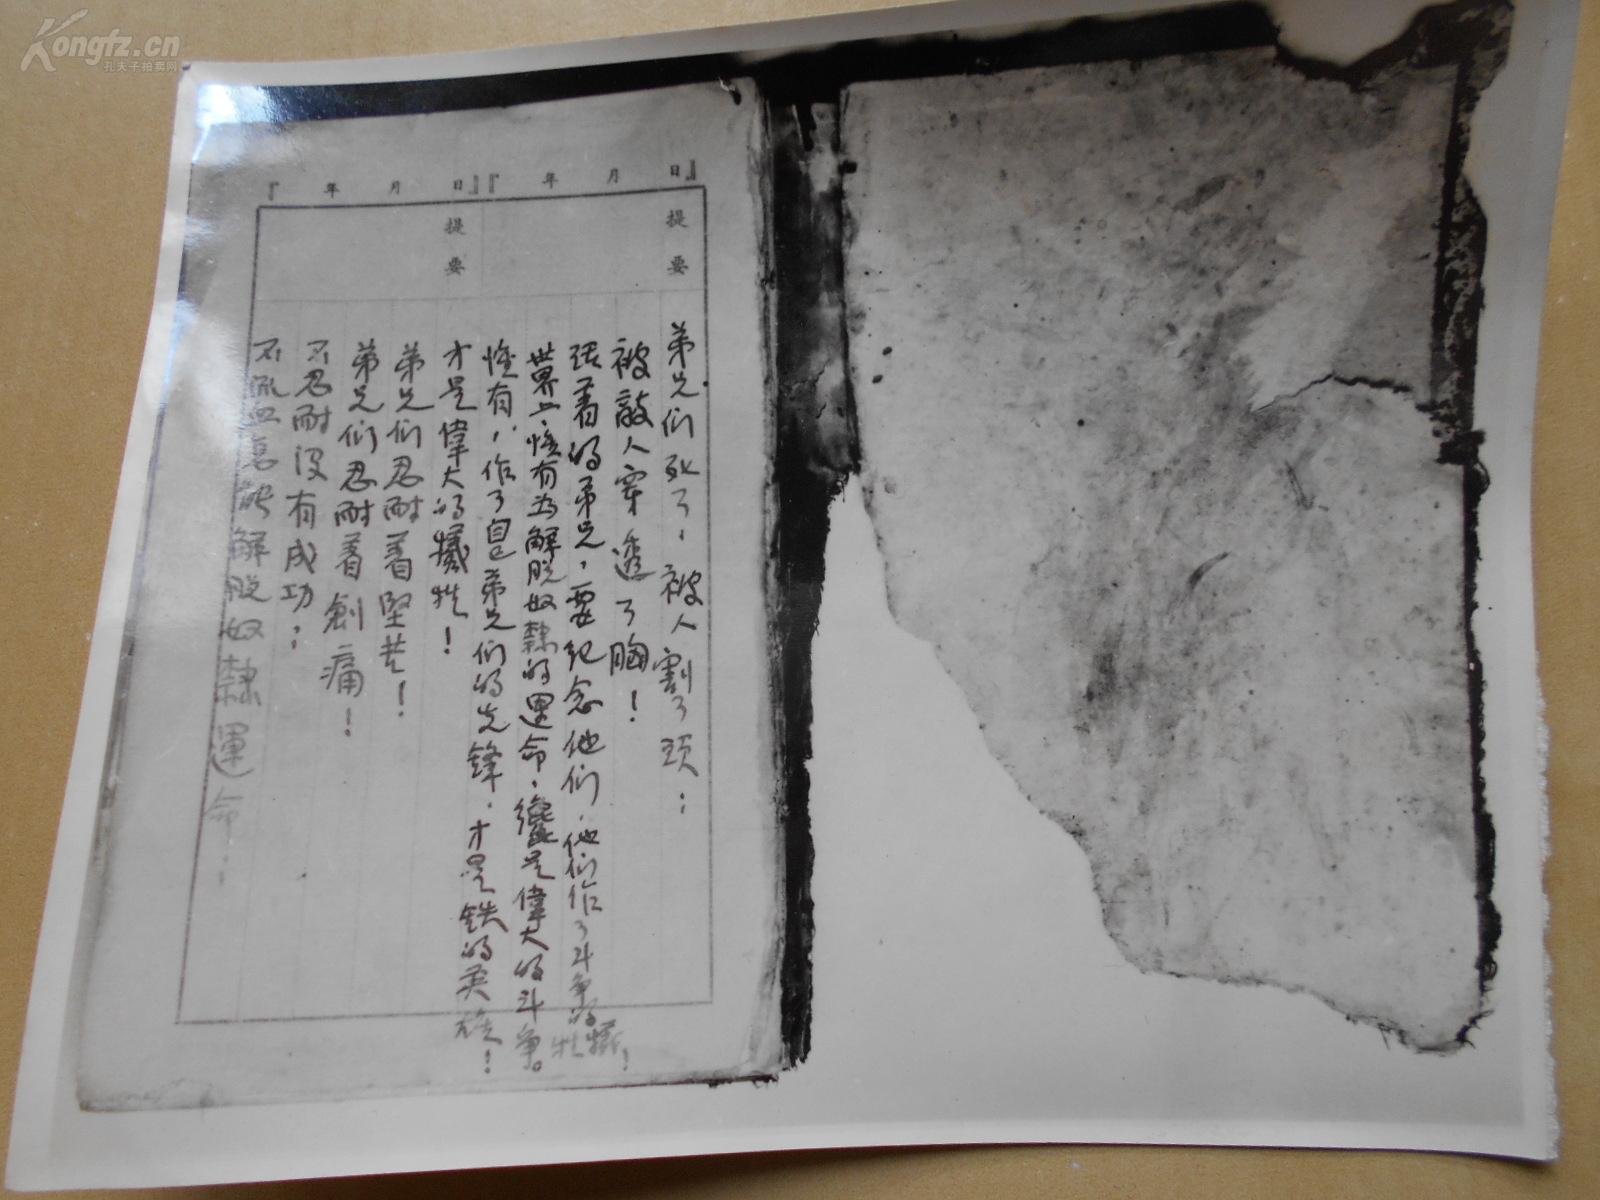 Kongfz.cn
孔夫子拍卖网
『 年 月 日』
『 年 月 日』
提要
提要
弟兄们死了，被人割了頭；
被敵人穿透了胸！
活着的弟兄，要纪念他们，他们作了斗争的犧牲！
世界上惟有为解脱奴隸的運命，才是偉大的斗争。
惟有，作了自己弟兄们的先鋒，才是铁的英雄！
才是偉大的犧牲！
弟兄们忍耐着堅苦！
弟兄们忍耐着創痛！
不忍耐没有成功；
不流血怎能解脱奴隸運命；